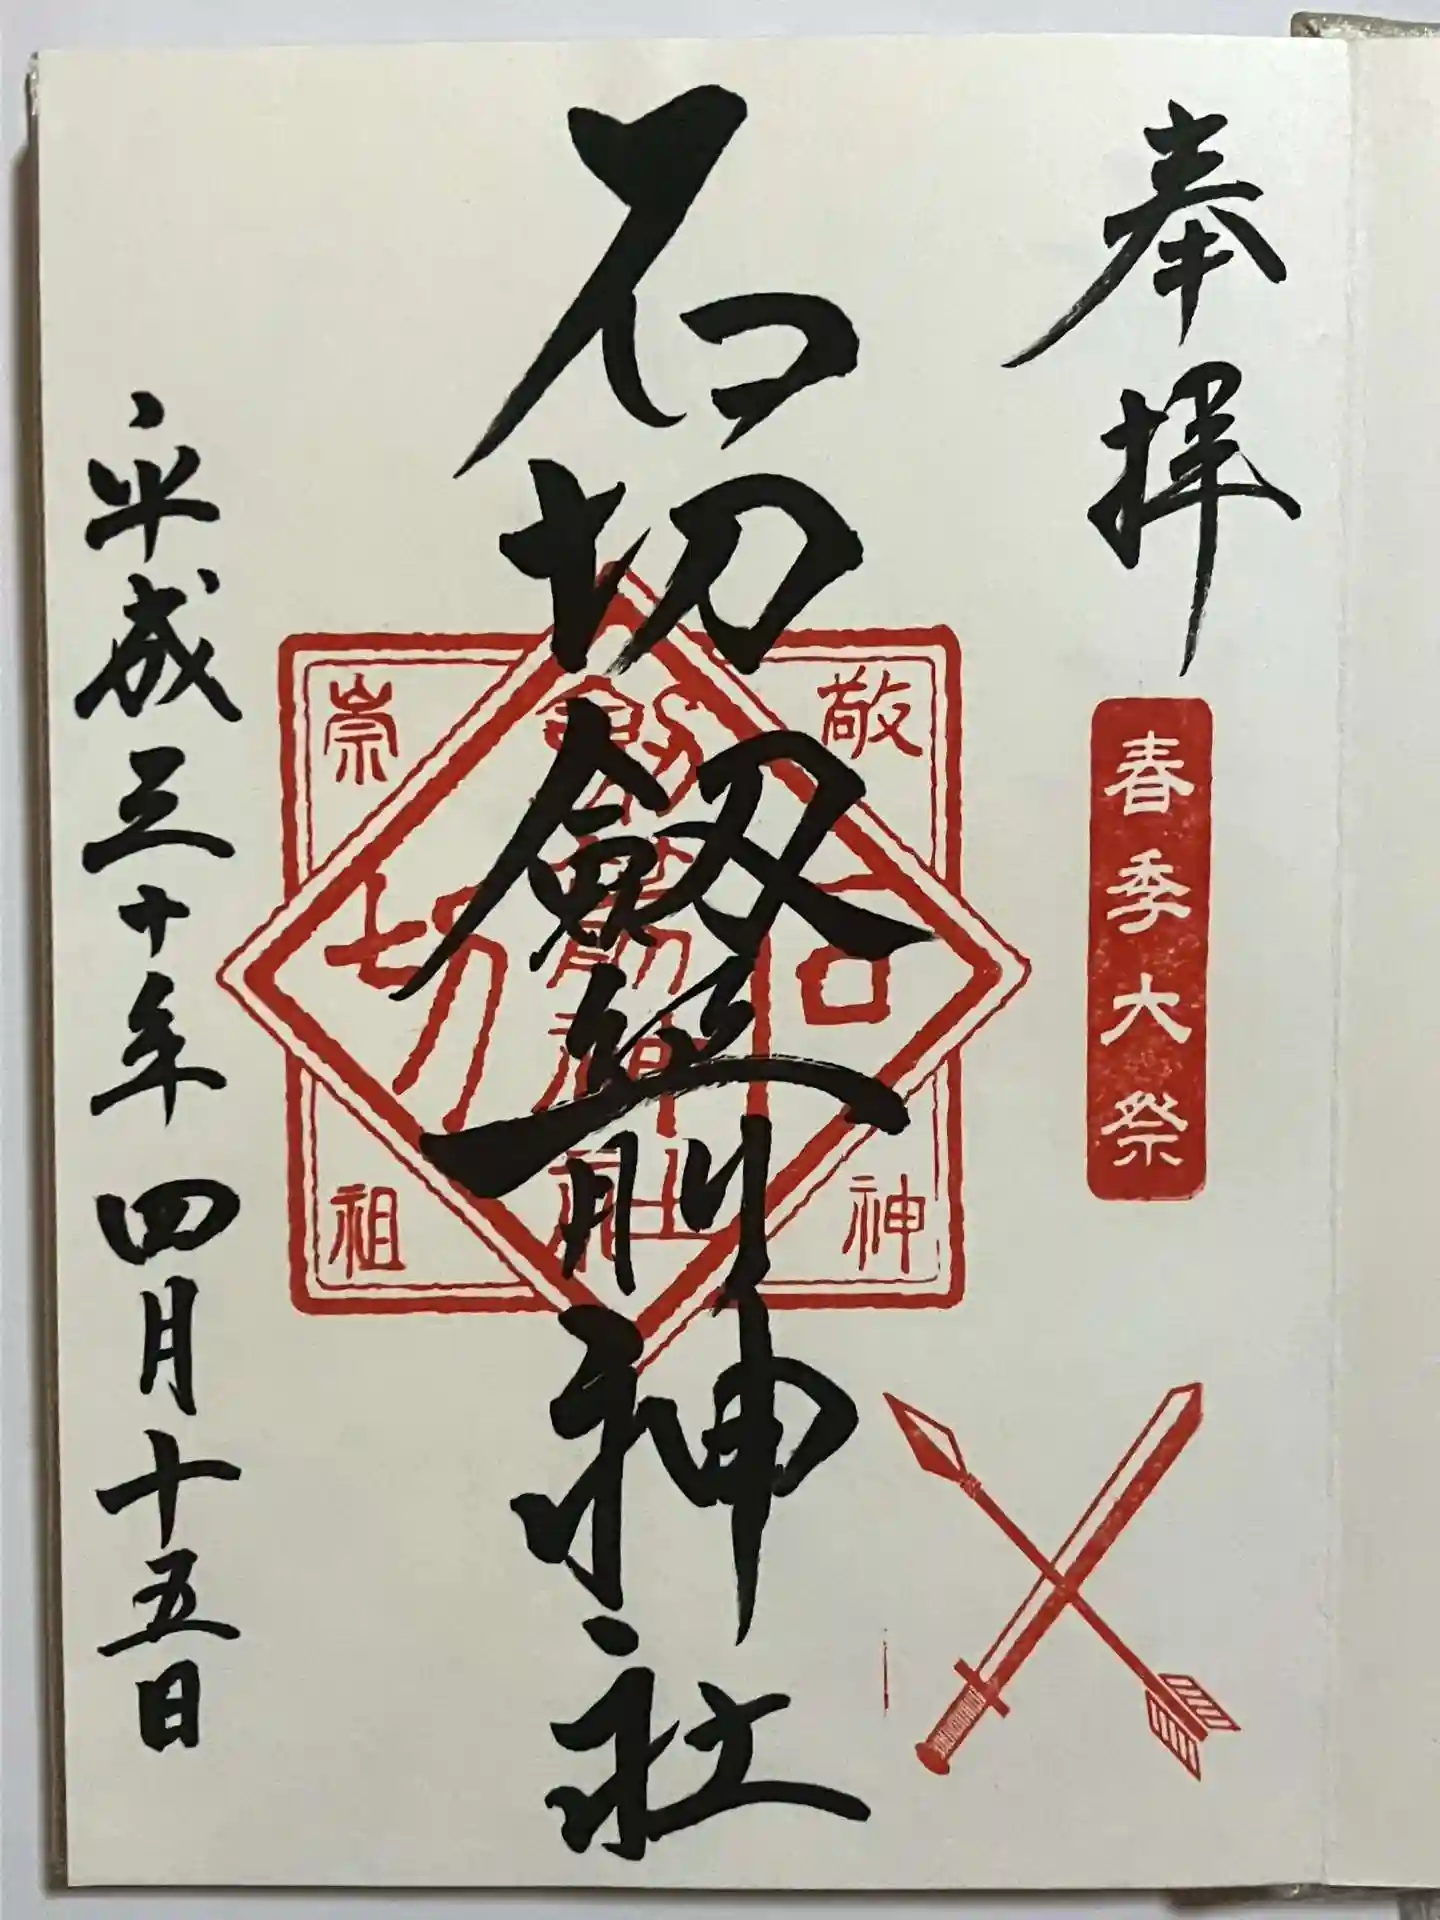 奉拝
春季大祭
石切劔箭神社
敬神
崇祖
石切劔箭神社
平成三十年四月十五日